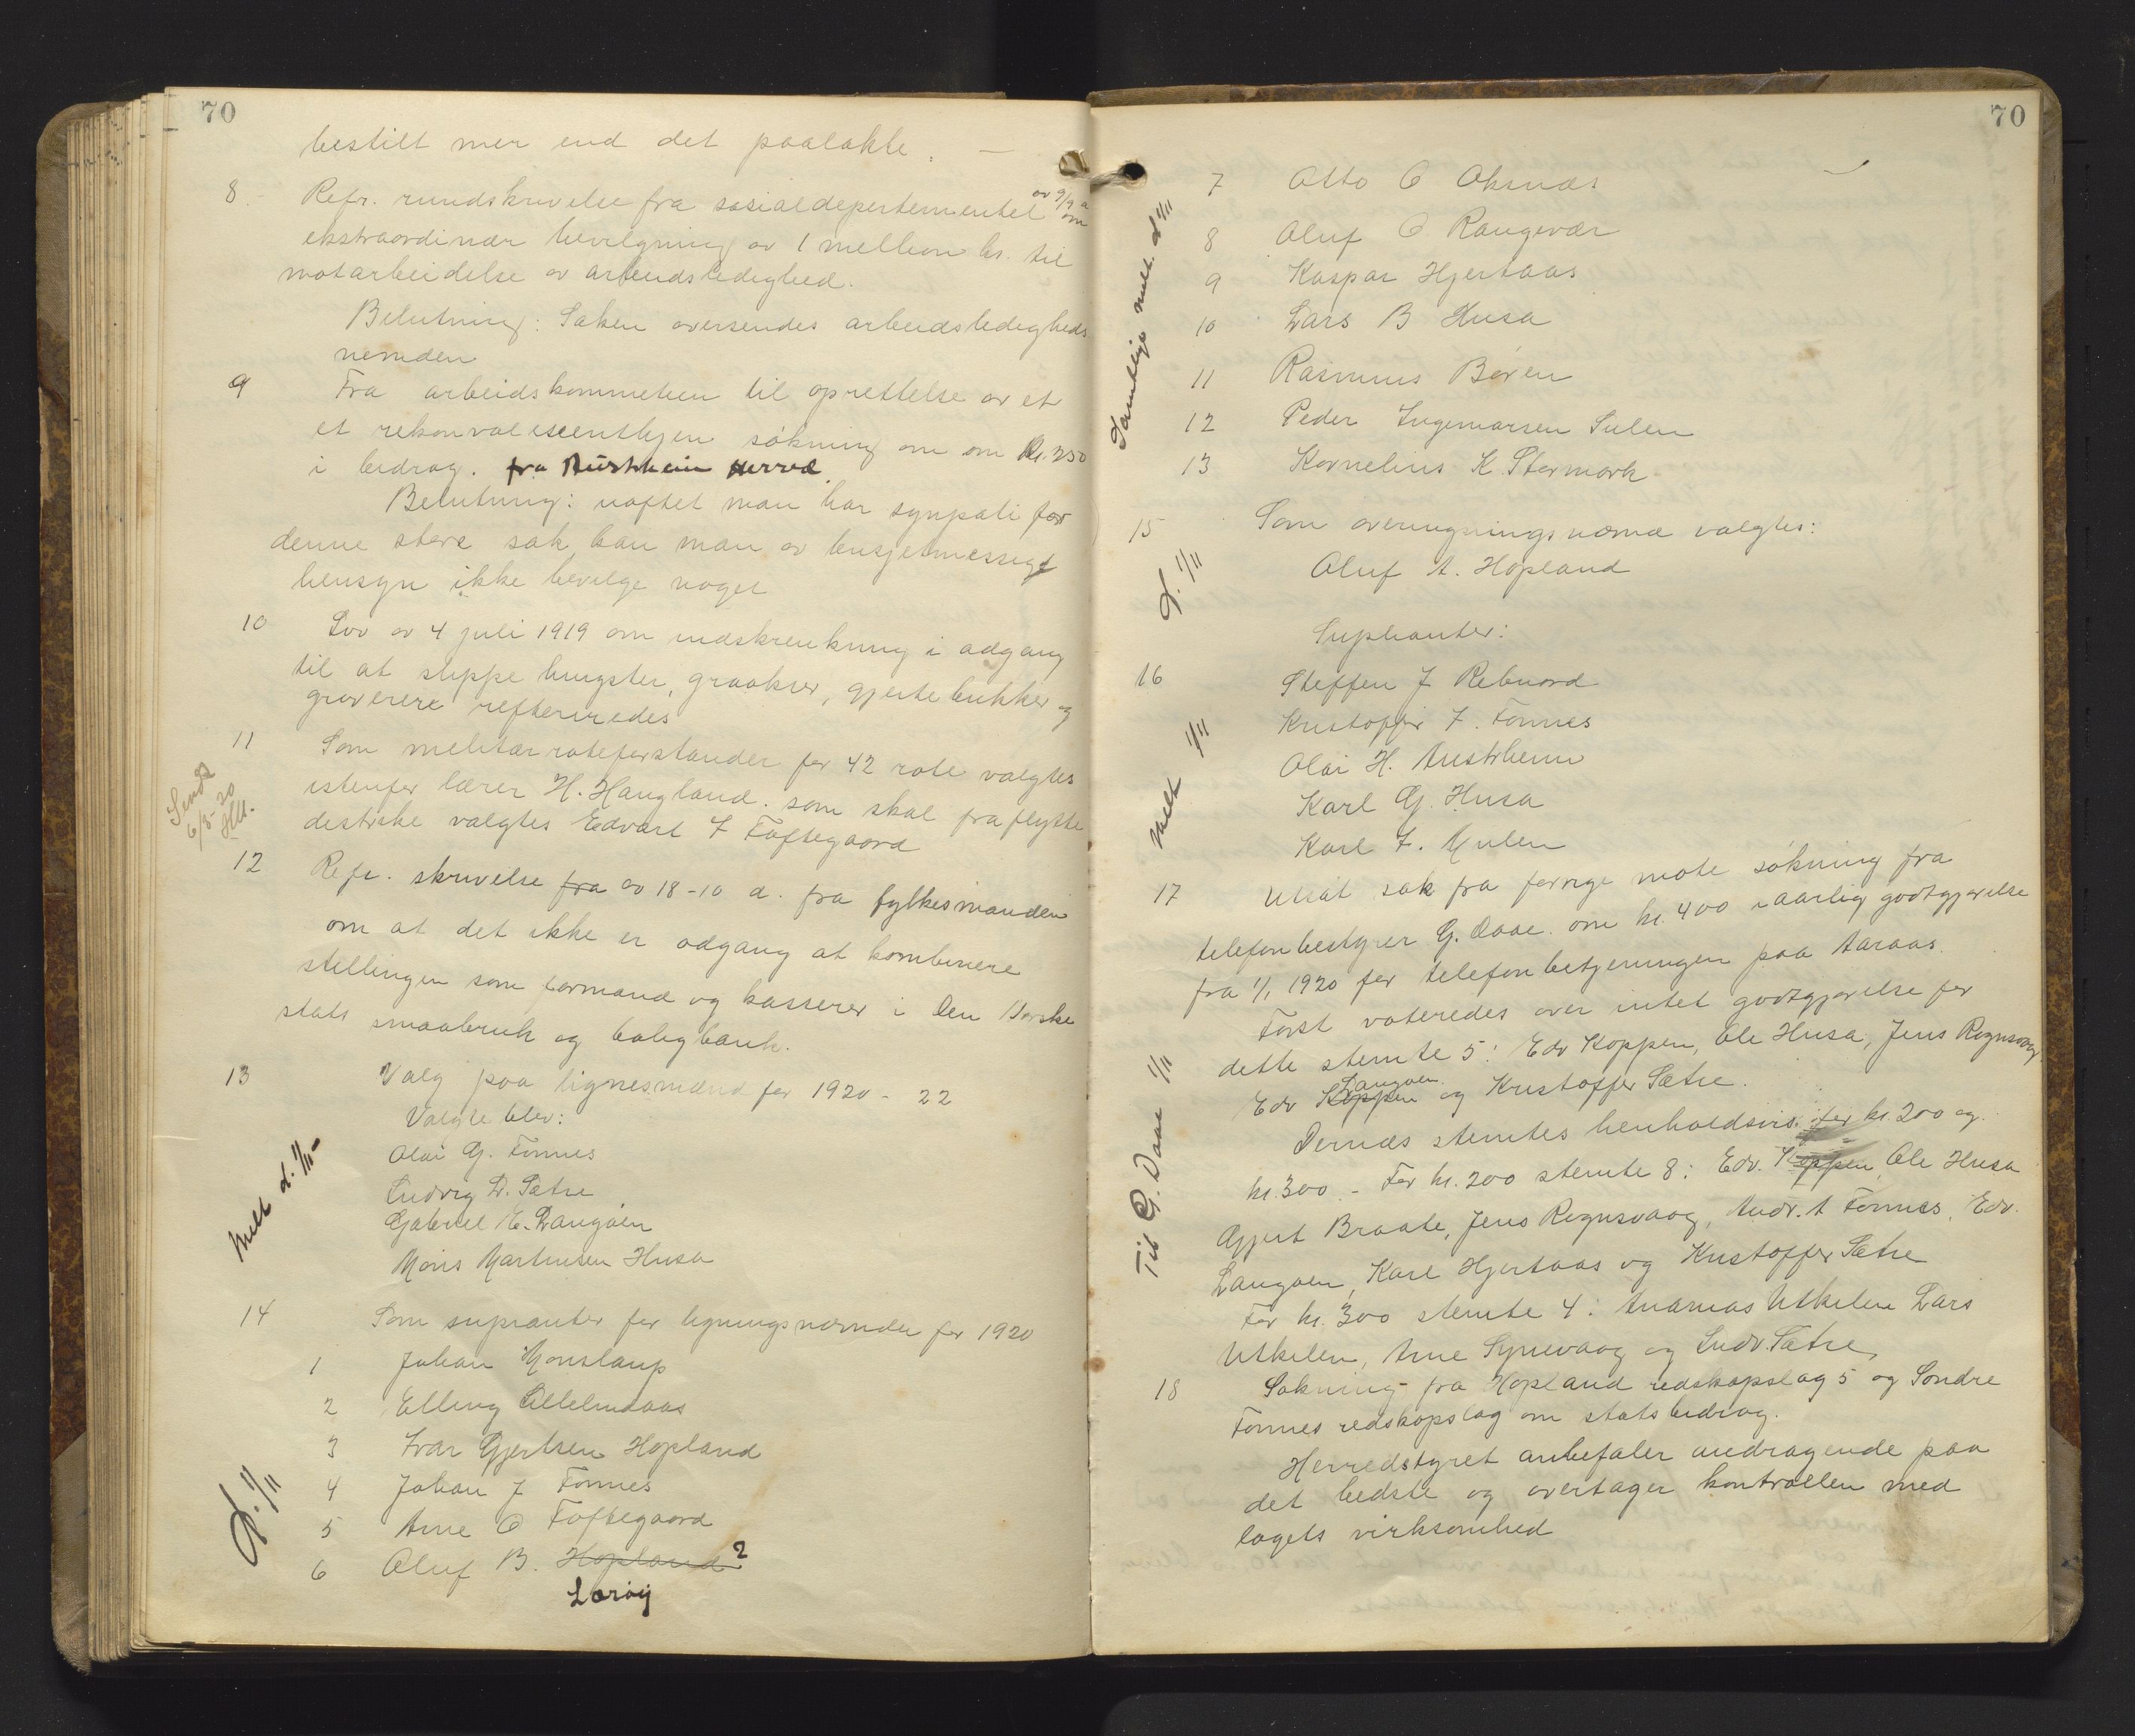 70
bestilt mer end det paalakte. —
8. Refr. rundskrivelse fra sosialdepertementet av 9/9 a om
ekstraordinær bevilgning av 1 mellion kr. til
motarbeidelse av arbeidsledighed.
Belutning: Saken oversendes arbeidsledigheds
nemden
9 Fra arbeidskommeteen til oprettelse av et
et rekonvalescenthjem søkning om om kr. 250
i bidrag. fra Austrheim Herred.
Belutning: uaftet man har synpati for
denne store sak, kan man av busjetmessigt
hensyn ikke bevilge noget
10 Lov av 4 juli 1919 om indskrenkning i adgang
til at slippe hingster, graokser, gjeitebukker og
graverere refterredes
11 Som melitær roteforstander for 42 rote valgtes
istenfor lærer H. Haugland. som skal fraflytte
destrikte valgtes Edvart F Toftegaard
Sendt
6/3-20
12 Refr. skrivelse fra av 18-10 a. fra fylkesmanden
om at det ikke er adgang at kombinere
stillingen som formand og kasserer i Den Norske
stats smaabruk og boligbank.
13 Valg paa lignesmænd for 1920 - 22
Valgte blev:
Olai G. Fonnes
Ludvig D. Sætre
Gabriel E. Langøen
Mons Martinsen Husa
Melt d. 1/11-
14 Som suplanter for ligningsnæmden for 1920
1 Johan Monslaup
2 Elling Lillelindaas
3 Ivar Gjertsen Hopland
4 Johan J Fonnes
5 Arne O Toftegaard
6 Oluf B. Hopland ?
Lærøy
d. 1/11
70
7 Otto O Oksnæs
8 Oluf O Rangevær
9 Kaspar Hjertaas
10 Lars B Husa
11 Rasmus Børen
12 Peder Ingemarsen Sulen
13 Kornelius K. Stormark
Samtlige melt. d 1/11
15 Som overligningsnæmd valgtes:
Oluf A. Hopland
d. 1/11
Suplianter:
16 Steffen J Rebnord
Kristoffer F. Fonnes
Olai H. Austrheim
Karl G. Husa
Karl F. Mulen
Melt 1/11
17 Utsat sak fra forrige møte søkning fra
telefonbestyrer G. Daae. om kr. 400 i aarlig godtgjørelse
fra 1/1 1920 for telefonbetjeningen paa Aaraas.
Først voteredes over intet godtgjørelse for
dette stemte 5: Edv Koppen, Ole Husa, Jens Rognsvaag
Edv Koppen Langøen og Kristoffer Sætre.
Dernæs stemtes henholdsvis for kr. 200 og
kr. 300. - For kr. 200 stemte 8: Edv. Koppen, Ole Husa
Gjert Braate, Jens Rognsvaag, Andr. A Fonnes, Edv.
Langøen, Karl Hjertaas og Kristoffer Sætre
For kr. 300 stemte 4: Andreas Utkilen Lars
Utkilen, Arne Synnevaag og Ludv. Sætre.
Til G. Daae 1/11
18 Søkning fra Hopland redskapslag 5 og Søndre
Fonnes redskapslag om statsbidrag.
Herredstyret anbefaler andragende paa
det bedste og overtager kontrollen med
lagets virksomhed